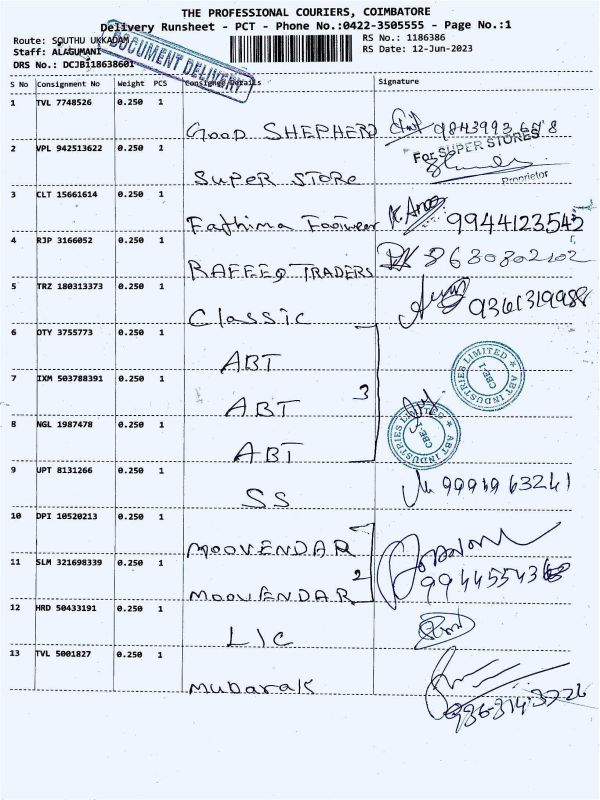 THE PROFESSIONAL COURIERS, COIMBATORE
Delivery Runsheet - PCT - Phone No.:0422-3505555 - Page No.:1
Route: SOUTHU UKKADAM
RS No.: 1186386
Staff: ALAGUMANI
RS Date: 12-Jun-2023
DRS No.: DCJB118638601
DOCUMENT DELIVERY
S No Consignment No Weight PCS Consignee Details Signature
1 TVL 7748526 0.250 1
GOOD SHEPHERD
2 VPL 942513622 0.250 1
For SUPER STORES
SUPER STORE
Proprietor
3 CLT 15661614 0.250 1
Fathima Footwear 9944123542
4 RJP 3166052 0.250 1
RAFEEQ TRADERS 8630802102
5 TRZ 180313373 0.250 1
Classic 9361319988
6 OTY 3755773 0.250 1
ABT
ABT INDUSTRIES LIMITED CBE-1
7 IXM 503788391 0.250 1
ABT 3
8 NGL 1987478 0.250 1
ABT INDUSTRIES LIMITED CBE-1
ABT
9 UPT 8131266 0.250 1
SS
10 DPI 10520213 0.250 1
MOOVENDAR
11 SLM 321698339 0.250 1
MOOVENDAR 2
12 HRD 50433191 0.250 1
LIC
13 TVL 5001827 0.250 1
Mubarak